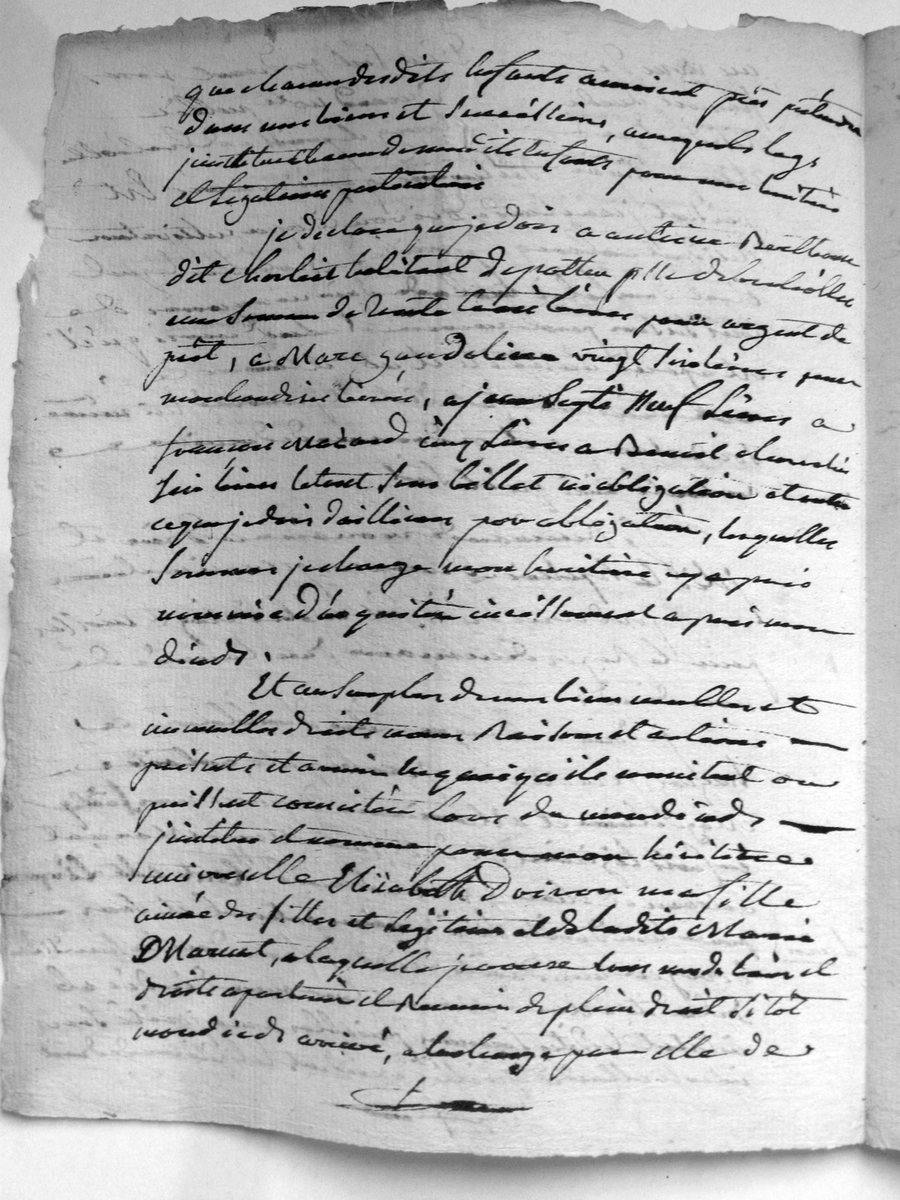 que chacun desdits enfants auroient peu prétendre
dans mes biens et successions, auxquels legs
j'institue chacun de mesdits enfants pour mes héritiers
et légataires particuliers
je déclare que je dois a antoine
dit habitant de
une somme de trente livres pour argent de
prêt, a Marc vingt six livres pour
marchandise livrée, a jean neuf livres a
françois cinq livres a Benoit
six livres le tout sans billet ni obligation et outre
ce que je dois d'ailleurs par obligation, lesquelles
sommes je charge mon héritière cy apres
nommée d'acquiter incessament apres mon
décds.
Et au surplus de mes biens meubles et
immeubles droits noms Raisons et actions
présents et avenir en quoi qu'ils consistent ou
puissent consister lors de mon décds
j'institue et nomme pour mon héritière
universelle Elisabeth Doiron ma fille
ainée des filles et légitime et de ladite Marie
DMarcet, a laquelle je veux tous mesds biens et
droits apartenir et Revenir de plein droit sitôt
mon décds arrivé, a la charge par elle de